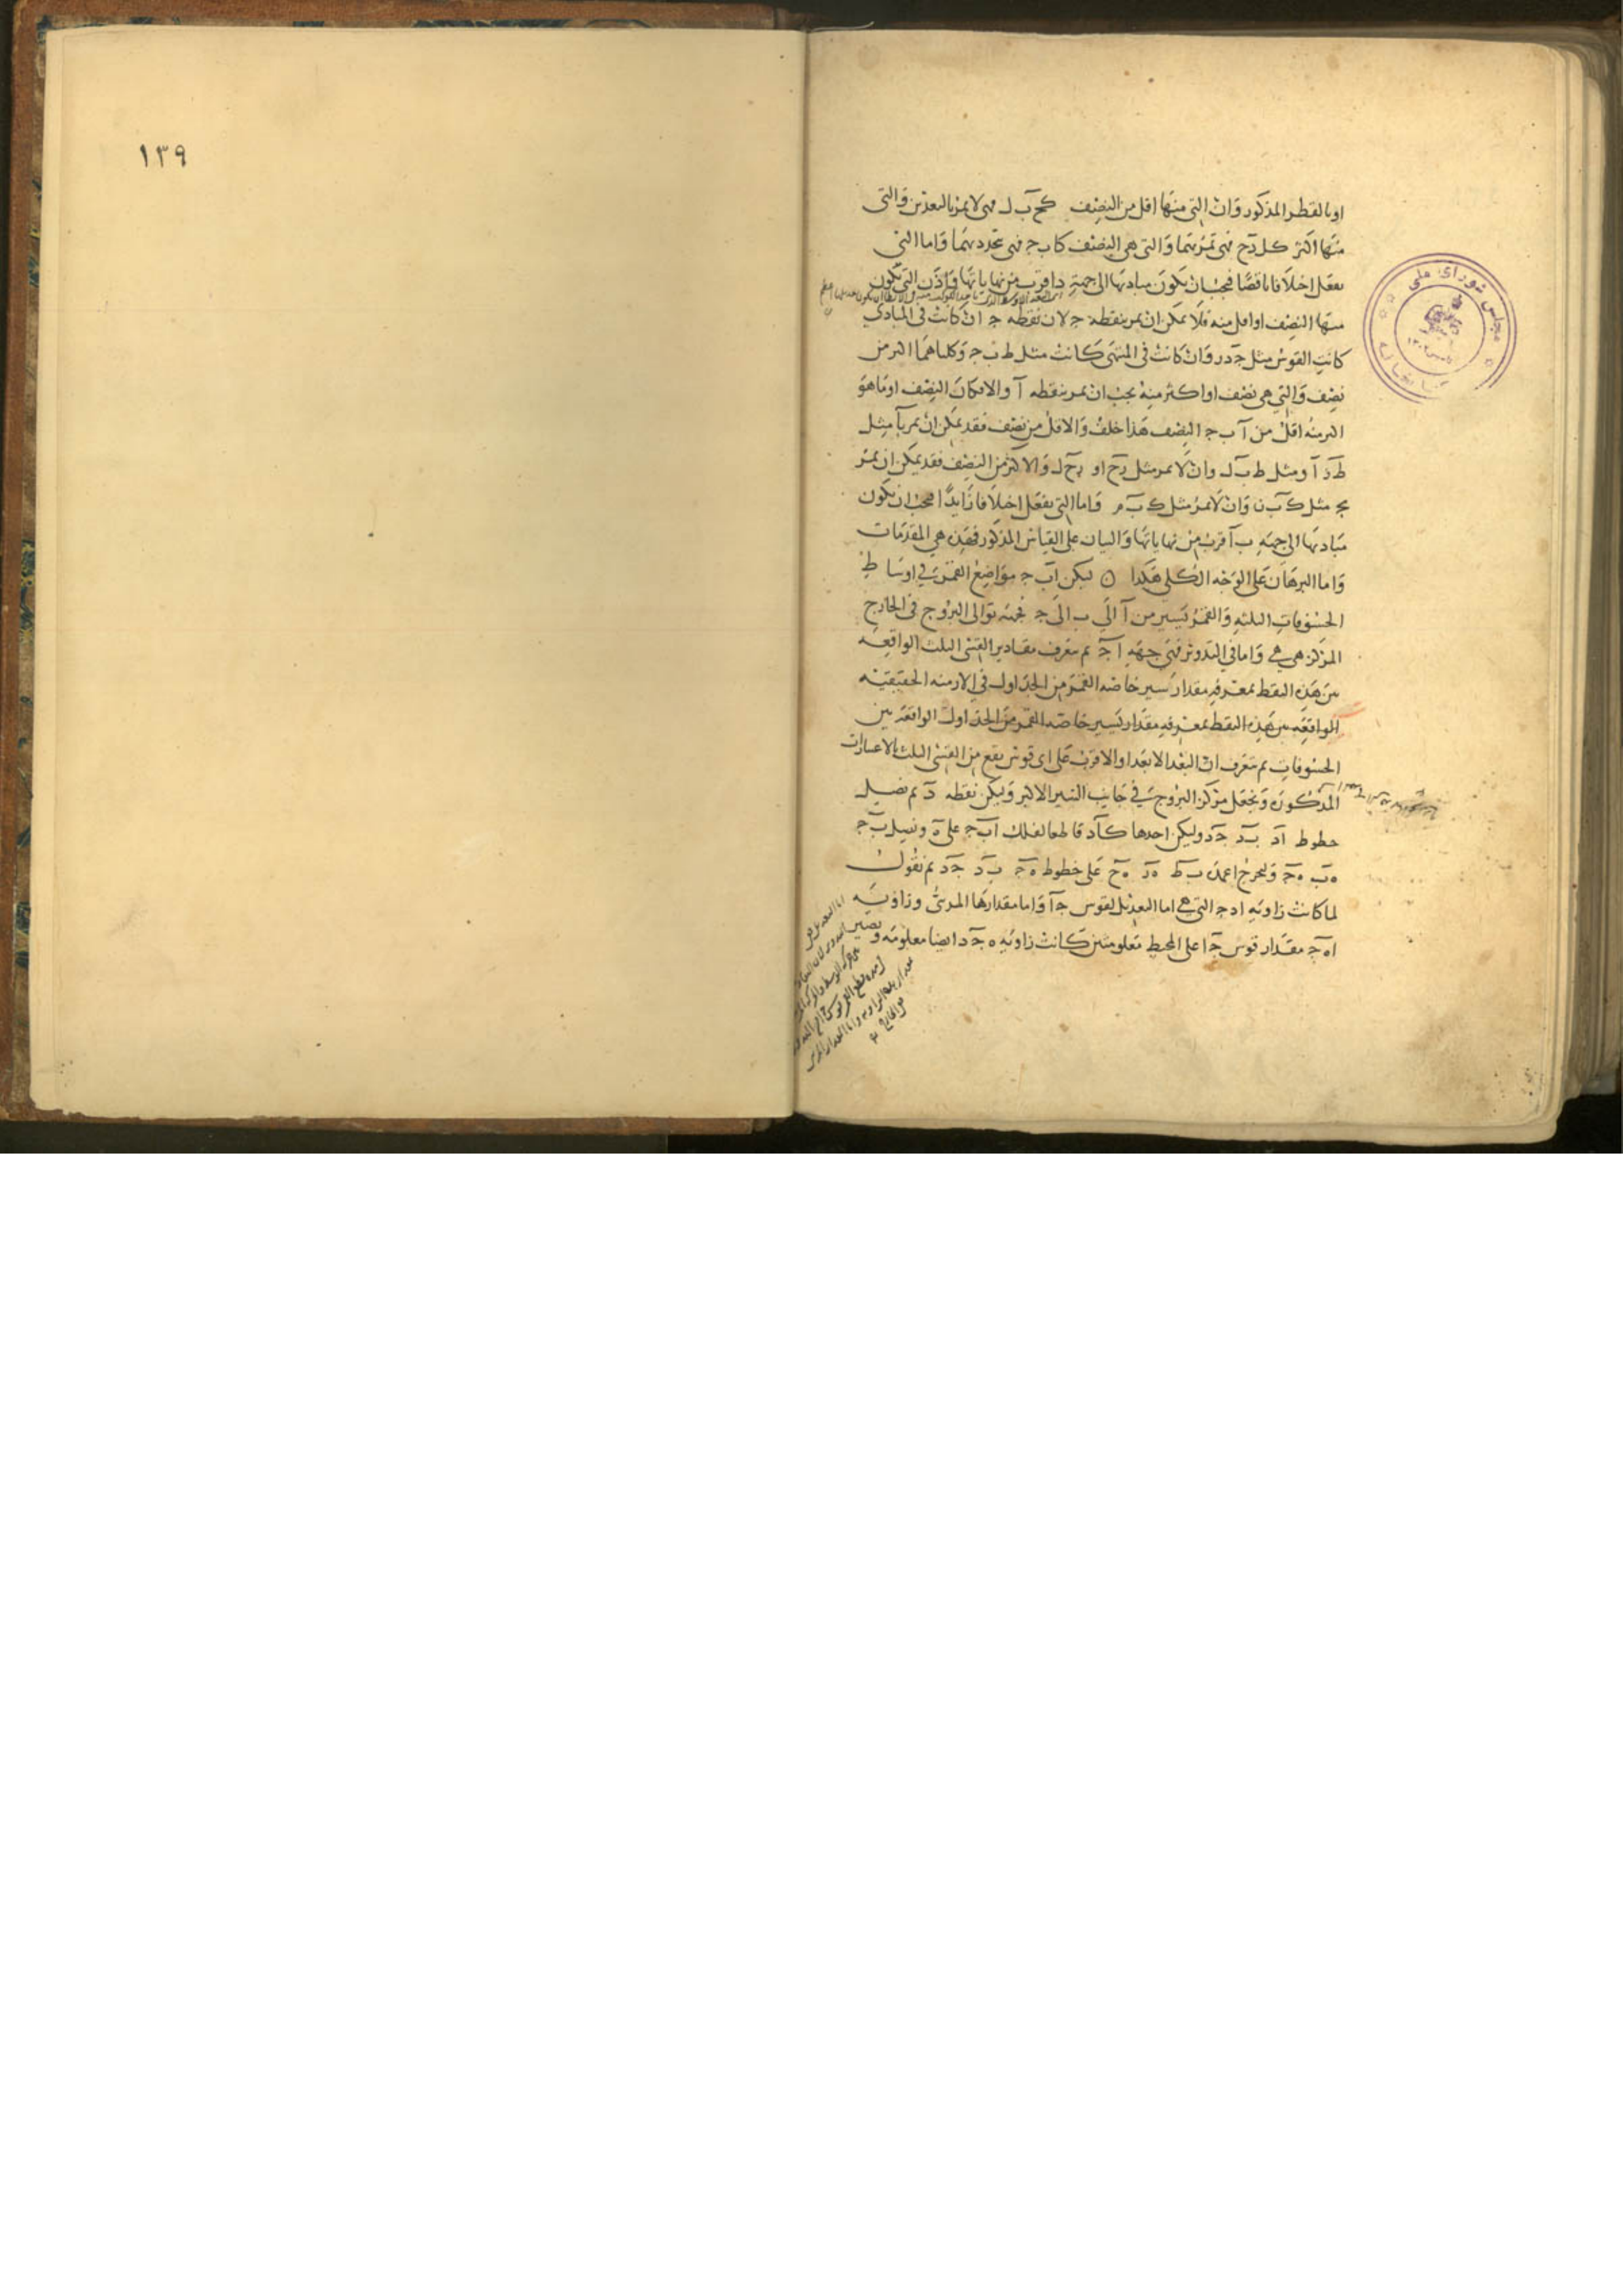 او بالقطر المذكور وان التي منها اقل من النصف كح ب ل فهي لا يمر بالبعدين والتي
منها اكثر كل د ح فهي تمر بهما والتي هي النصف كاب ج فهي تحدد بهما واما التي
يفعل اختلافا ناقصا فيجب ان يكون مباديها الى جهة د ا قرب من نهاياتها واذن التي تكون
منها النصف او اقل منه فلا يمكن ان يمر بنقطة ج لان نقطة ج ان كانت في المبادي
كانت القوس مثل ج د ر وان كانت في المنتهى كانت مثل ط ب ج وكلاهما اكبر من
نصف والتي هي نصف او اكثر منه يجب ان يمر بنقطة آ والا فكان النصف او ما هو
اكبر منه اقل من آ ب ج النصف هذا خلف والاقل من نصف فقد يمكن ان يمر بآ مثل
ط د آ ومثل ط ب ل وان لا يمر مثل ز ح او ز ح ل والاكثر من النصف فقد يمكن ان يمر
بج مثل ك ب ن وان لا يمر مثل ك ب م واما التي يفعل اختلافا زايدا فيجب ان يكون
مباديها الى جهة ب آ قرب من نهاياتها والبيان على القياس المذكور فهذه هي المقدمات
واما البرهان على الوجه الكلي هكذا ليكن اب ج مواضع القمر في اوساط
الخسوفات الثلثة والقمر يسير من آ الى ب الى ج فجهة توالى البروج في الخارج
المركز هي هي واما في التدوير فهي جهة ا ج ثم نعرف مقادير القسي الثلث الواقعة
بين هذه النقط بمعرفة مقدار تسير خاصة القمر من الجداول في الازمنة الحقيقية
الواقعة بين هذه النقط بمعرفة مقدار تسير خاصة القمر من الجداول الواقعة بين
الخسوفات ثم نعرف ان البعد الابعد او الاقرب على اى قوس يقع من القسي الثلث بالاعتبارات
المذكورة ونجعل مركز البروج في جانب النير الاكبر وليكن نقطة د ثم نصل
خطوط اد ب د ج د وليكن احدها كآد قاطعا لفلك اب ج على ه ونصل ب ج
ه ب ه ج وليخرج اعمدة ب ط ه ز ه ح على خطوط ه ج ب د ج د ثم نقول
لما كانت زاوية ا د ج التي هي اما التعديل لقوس ج آ واما مقدارها المرئى وزاوية
ا ه ج مقدار قوس ج آ على المحيط معلومتين كانت زاوية ه ج د ايضا معلومة وتصير
مجلس شوراى ملى
كتابخانه
١٣٩